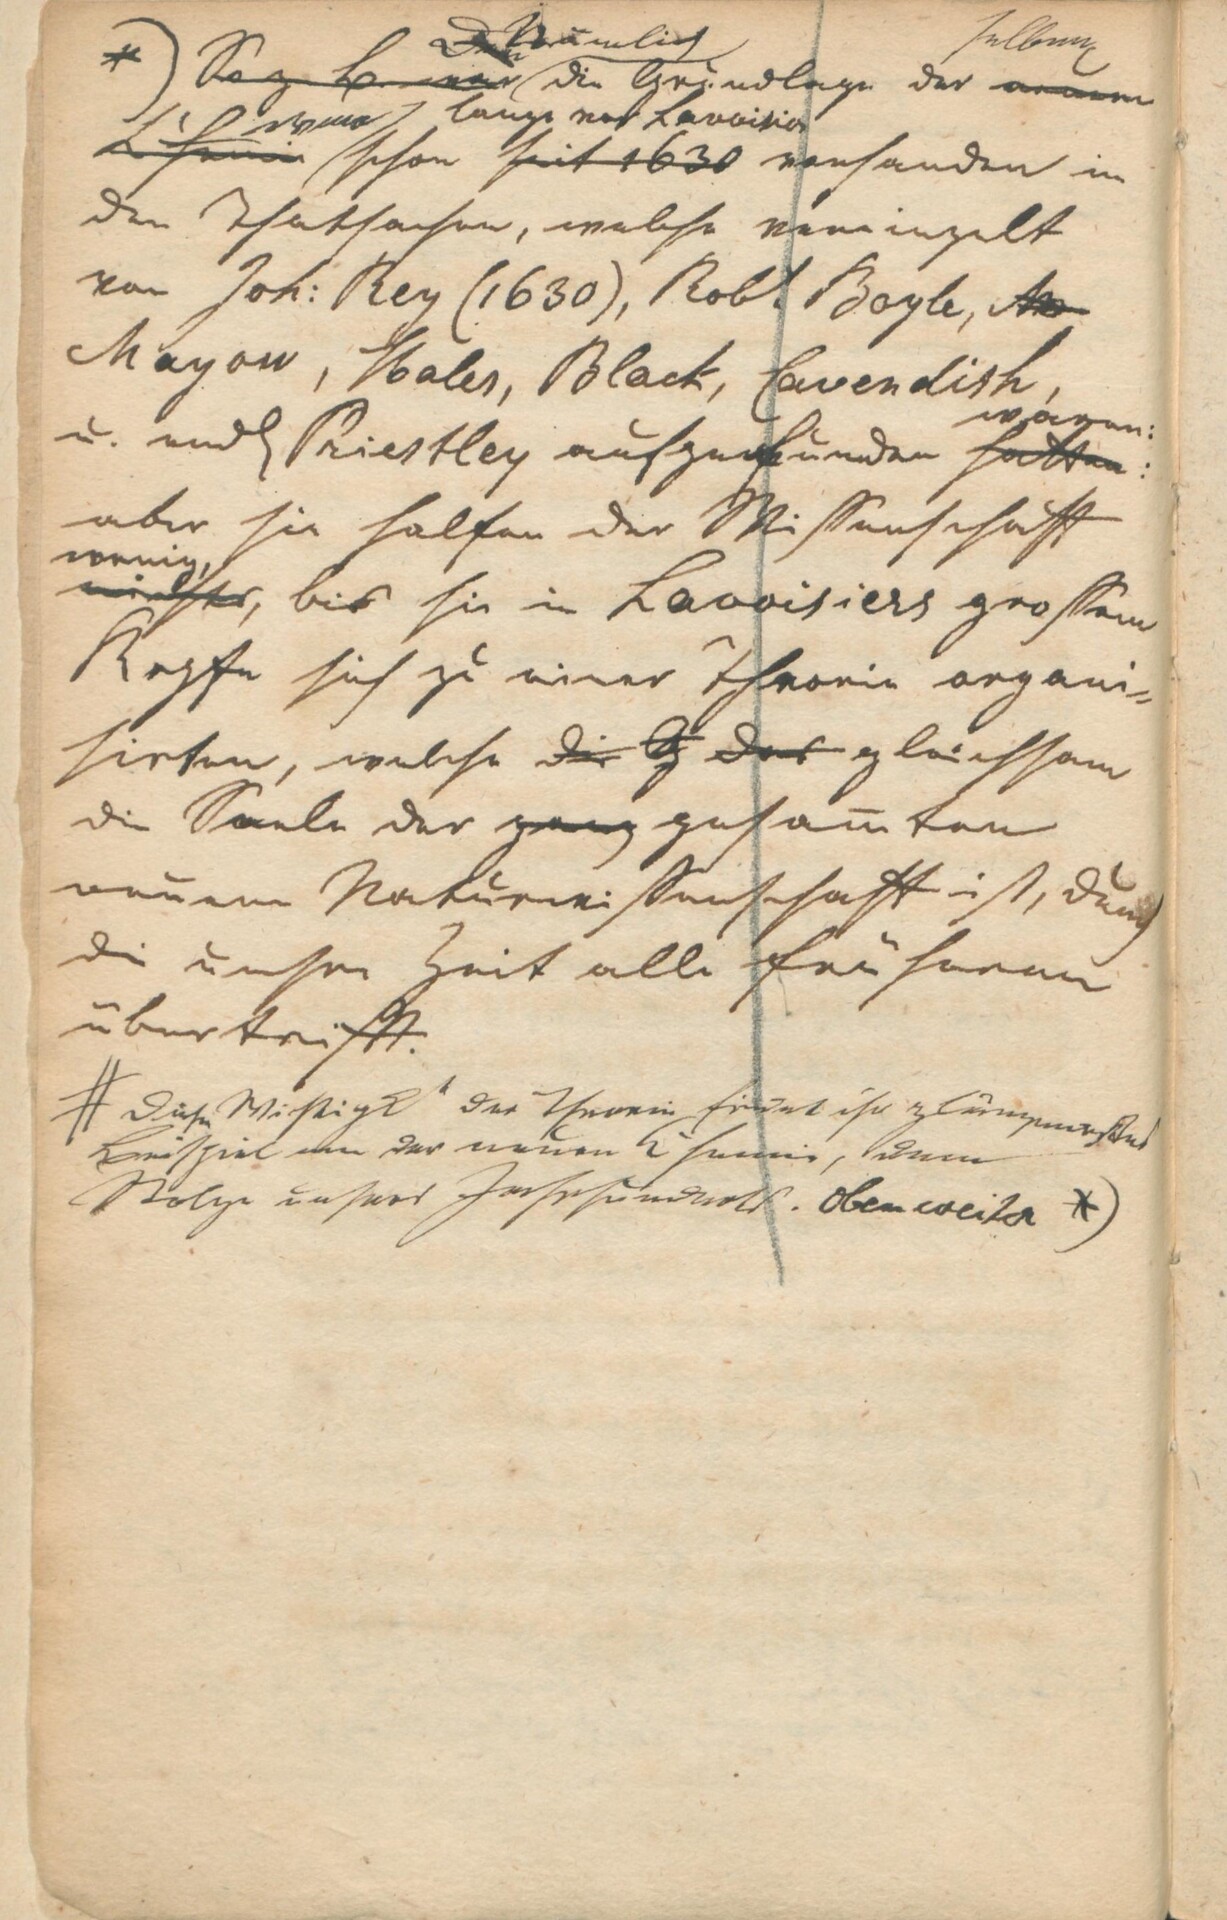 *) So z. B. war Nämlich die Grundlage der neuern selben
Chemie war schon seit 1630 lange vor Lavoisier vorhanden in
den Thatsachen, welche vereinzelt
von Joh: Rey (1630), Robt. Boyle,
Mayow, Hales, Black, Cavendish,
u. endl. Priestley aufgefunden hatten: waren:
aber sie halfen der Wissenschaft
nichts, wenig, bis sie in Lavoisiers grossem
Kopfe sich zu einer Theorie organi-
sirten, welche die G das gleichsam
die Seele der ganz gesam̅ten
neuern Naturwissenschafft ist, durch
die unsre Zeit alle früheren
übertrifft.
# Diese Wichtigkt der Theorie findet ihr glänzendstes
Beispiel an der neuen Chemie, dem
Stolze unsers Jahrhunderts. oben weiter *)